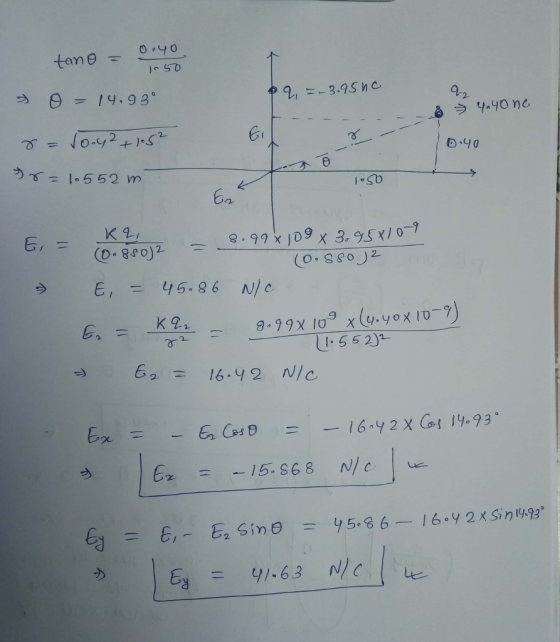 tanθ = 0.40 / 1.50
⇒ θ = 14.93°
r = √0.4² + 1.5²
⇒ r = 1.552 m
q₁ = -3.95 nc
q₂
⇒ 4.40 nc
E₁
r
0.40
θ
1.50
E₂
E₁ = Kq₁ / (0.880)² = 8.99 × 10⁹ × 3.95 × 10⁻⁹ / (0.880)²
⇒ E₁ = 45.86 N/C
E₂ = Kq₂ / r² = 8.99 × 10⁹ × (4.40 × 10⁻⁹) / (1.552)²
⇒ E₂ = 16.42 N/C
Ex = - E₂ Cosθ = - 16.42 × Cos 14.93°
⇒ Ex = -15.868 N/C
Ey = E₁ - E₂ Sinθ = 45.86 - 16.42 × Sin 14.93°
⇒ Ey = 41.63 N/C